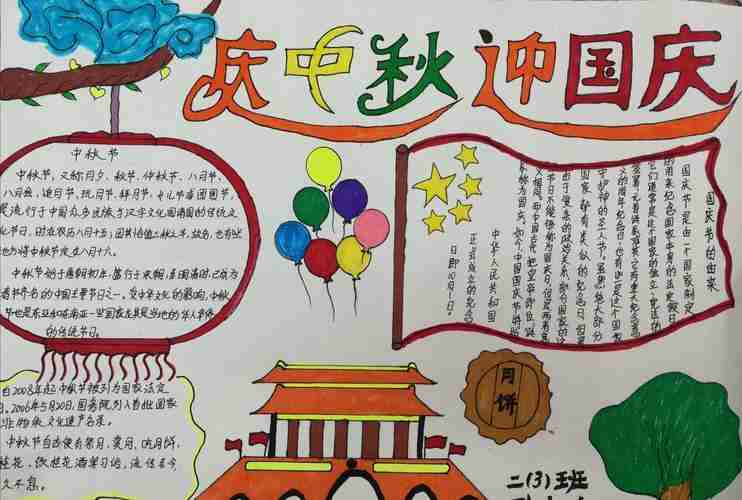 庆中秋 迎国庆
中秋节
中秋节,又称月夕、秋节、仲秋节、八月节、
八月会、追月节、玩月节、拜月节、女儿节或团圆节,
是流行于中国众多民族与汉字文化圈诸国的传统文
化节日,时在农历八月十五;因其恰值三秋之半,故名,也有些
地方将中秋节定在八月十六。
中秋节始于唐朝初年,盛行于宋朝,至明清时,已成为
与春节齐名的中国主要节日之一。受中华文化的影响,中秋
节也是东亚和东南亚一些国家尤其是当地的华人华侨
的传统节日。
国庆节的由来
国庆节是由一个国家制定
的用来纪念国家本身的法定假日。
它们通常是这个国家的独立、宪法的
签署、元首诞辰或其他有重大纪念意
义的周年纪念日;也有些是这个国家
守护神的圣人节。虽然绝大部分
国家都有类似的纪念日,但是
由于复杂的政治关系,部分国家的这
节日不能够称为国庆日,但是两者意
义相同。而中国古代把皇帝即位、诞
称为国庆。如今,中国国庆节特指
中华人民共和国
正式成立的纪念
日即10月1日。
自2008年起中秋节被列为国家法定
日。2006年5月20日,国务院列入首批国家
非物质文化遗产名录。
中秋节自古便有祭月、赏月、吃月饼、
桂花、饮桂花酒等习俗,流传至今
久不息。
月饼
二(3)班